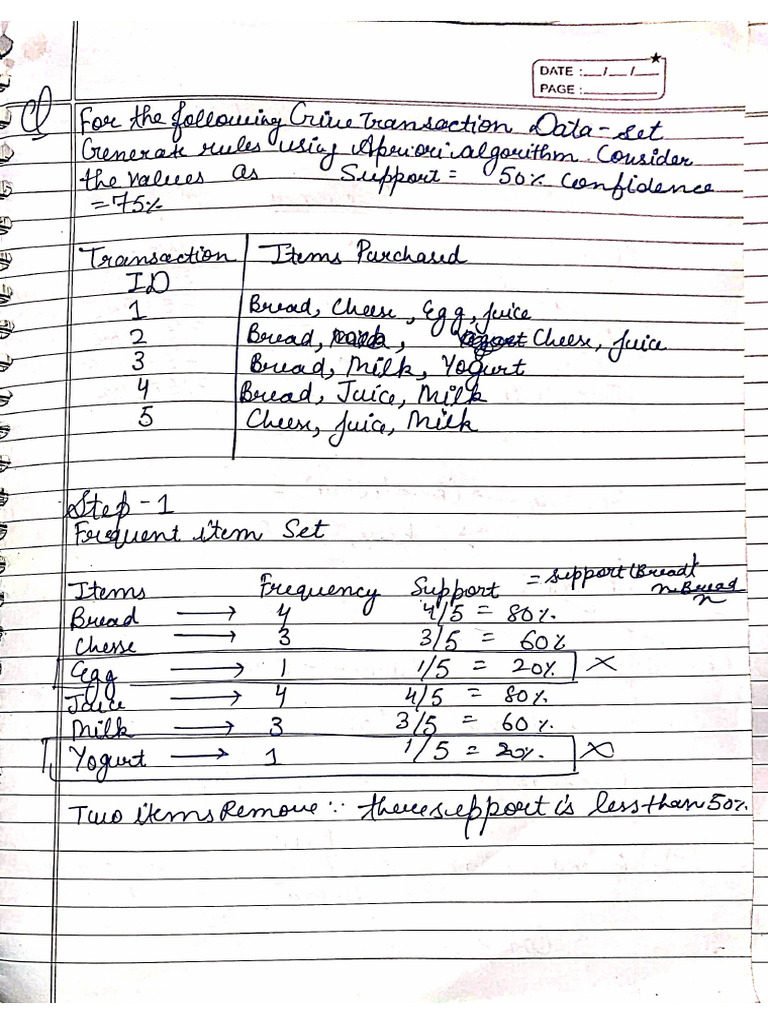 DATE : __/__/__
PAGE : ______
Q For the following Give Transaction Data-set
Generate rules using Apriori algorithm Consider
the values as Support = 50% Confidence
= 75%
Transaction ID | Items Purchased
1 Bread, Cheese, Egg, Juice
2 Bread, Cheese, Juice
3 Bread, Milk, Yogurt
4 Bread, Juice, Milk
5 Cheese, Juice, Milk
Step - 1
Frequent item Set
Items Frequency Support = Support (Bread) n Bread / n
Bread → 4 4/5 = 80%.
Chesse → 3 3/5 = 60%
Egg → 1 1/5 = 20% ×
Juice → 4 4/5 = 80%.
Milk → 3 3/5 = 60%.
Yogurt → 1 1/5 = 20%. ×
Two items Remove ∵ there support is less than 50%.